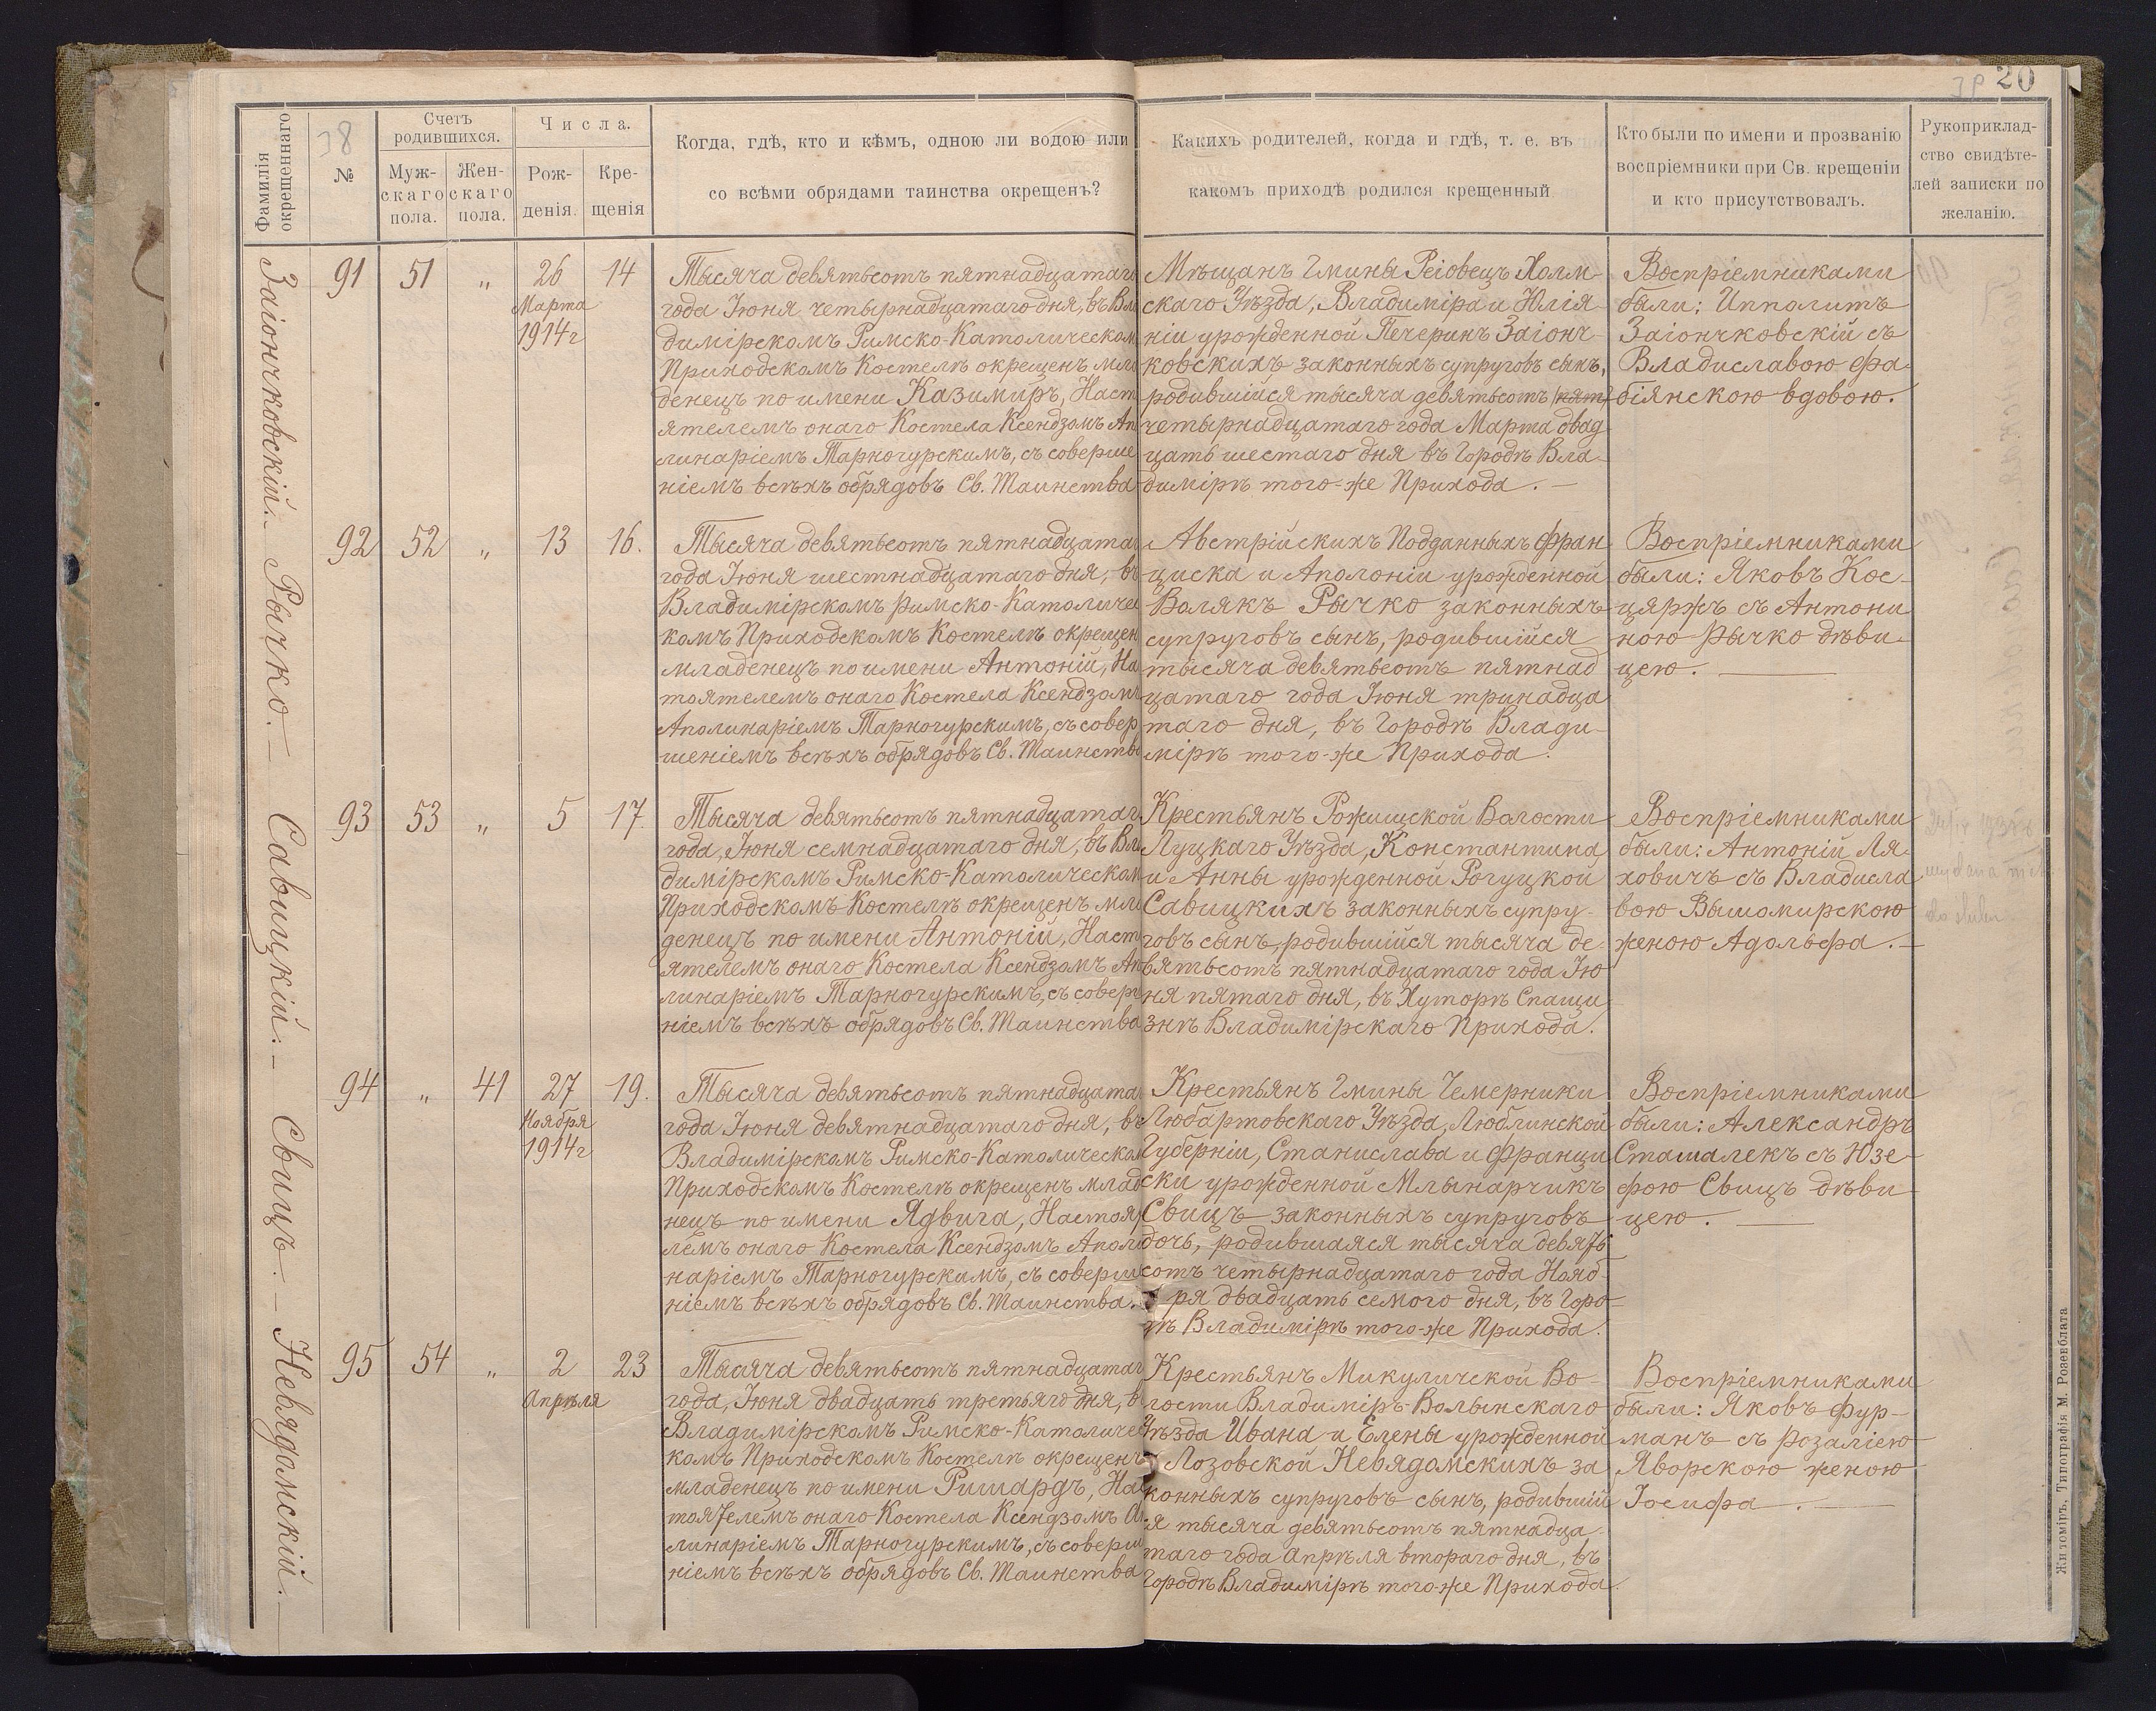 20
Фамилія окрещеннаго
№
Счетъ родившихся.
Мужскаго пола.
Женскаго пола.
Числа.
Рожденія.
Крещенія
Когда, гдѣ, кто и кѣмъ, одною ли водою или
со всѣми обрядами таинства окрещенъ?
Какихъ родителей, когда и гдѣ, т. е. въ
какомъ приходѣ родился крещенный
Кто были по имени и прозванію
воспріемники при Св. крещеніи
и кто присутствовалъ.
Рукоприклад-
ство свидѣте-
лей записки по
желанію.
Заіончковскій.
91 51 „ 26 14
Марта
1914 г
Тысяча девятьсотъ пятнадцатаго
года Іюня четырнадцатаго дня, въ Вла
димірскомъ Римско-Католическом
Приходскомъ Костелѣ окрещенъ мла
денецъ по имени Казимиръ, Наст
ятелемъ онаго Костела Ксендзомъ Ап
линаріемъ Тарногурскимъ, съ соверше
ніемъ всѣхъ обрядовъ Св. Таинства
Мѣщанъ Гмины Реіовецъ Холм-
скаго Уѣзда, Владиміра и Юлія-
ніи урожденной Печеринъ Заіонч-
ковскихъ законныхъ супруговъ сынъ,
родившійся тысяча девятьсотъ (пят)
четырнадцатаго года Марта двад-
цать шестаго дня въ Городѣ Вла-
димірѣ того-же Прихода. —
Воспріемниками
были: Ипполитъ
Заіончковскій съ
Владиславою Фа-
біянскою вдовою.
Рычко. —
92 52 „ 13 16.
Тысяча девятьсотъ пятнадцата
года Іюня шестнадцатаго дня, въ
Владимірскомъ Римско-Католичес
комъ Приходскомъ Костелѣ окрещен
младенецъ по имени Антоній, На
тоятелемъ онаго Костела Ксендзомъ
Аполинаріемъ Тарногурскимъ, съ совер
шеніемъ всѣхъ обрядовъ Св. Таинств
Австрійскихъ Подданныхъ Фран
циска и Аполоніи урожденной
Волякъ Рычко законныхъ
супруговъ сынъ, родившійся
тысяча девятьсотъ пятнад
цатаго года Іюня тринадца
таго дня, въ Городѣ Влади-
мірѣ того-же Прихода.
Воспріемниками
были: Яковъ Кос-
цяржъ съ Антони
ною Рычко дѣви-
цею. —
Савицкій. —
93 53 „ 5 17.
Тысяча девятьсотъ пятнадцатаг
года, Іюня семнадцатаго дня, въ Вла
димірскомъ Римско-Католическом
Приходскомъ Костелѣ окрещенъ мла
денецъ по имени Антоній, Наст
ятелемъ онаго Костела Ксендзомъ Ап
линаріемъ Тарногурскимъ, съ соверш
ніемъ всѣхъ обрядовъ Св. Таинства
Крестьянъ Рожищской Волости
Луцкаго Уѣзда, Константина
и Анны урожденной Рогуцкой
Савицкихъ законныхъ супру-
говъ сынъ, родившійся тысяча де-
вятьсотъ пятнадцатаго года Ію
ня пятаго дня, въ Хуторѣ Спащи
знѣ Владимірскаго Прихода.
Воспріемниками
были: Антоній Ля-
ховичъ съ Владисла
вою Вышомирскою
женою Адольфа. —
Свицъ. —
94 „ 41 27 19.
Ноября
1914 г
Тысяча девятьсотъ пятнадцата
года Іюня девятнадцатаго дня, въ
Владимірскомъ Римско-Католическом
Приходскомъ Костелѣ окрещенъ млад
нецъ по имени Ядвига, Настоя
лемъ онаго Костела Ксендзомъ Аполи
наріемъ Тарногурскимъ, съ соверше
ніемъ всѣхъ обрядовъ Св. Таинства.
Крестьянъ Гмины Чемерники
Любартовскаго Уѣзда, Люблинской
Губерніи, Станислава и Франци
ски урожденной Млынарчикъ
Свицъ законныхъ супруговъ
дочь, родившаяся тысяча девять
сотъ четырнадцатаго года Нояб-
ря двадцать семого дня, въ Горо-
дѣ Владимірѣ того-же Прихода.
Воспріемниками
были: Александръ
Сташалекъ съ Юзе-
фою Свицъ дѣви-
цею. —
Невядомскій. —
95 54 „ 2 23
Апрѣля
Тысяча девятьсотъ пятнадцатаг
года, Іюня двадцать третьяго дня, в
Владимірскомъ Римско-Католичес
комъ Приходскомъ Костелѣ окрещенъ
младенецъ по имени Ришардъ, Нас
тоятелемъ онаго Костела Ксендзомъ А
линаріемъ Тарногурскимъ, съ соверше
ніемъ всѣхъ обрядовъ Св. Таинства
Крестьянъ Микуличской Во-
лости Владиміръ-Волынскаго
Уѣзда Ивана и Елены урожденной
Лозовской Невядомскихъ за
конныхъ супруговъ сынъ, родившій
ся тысяча девятьсотъ пятнадца-
таго года Апрѣля втораго дня, въ
Городѣ Владимірѣ того-же Прихода.
Воспріемниками
были: Яковъ Фур-
манъ съ Розаліею
Яворскою женою
Іосифа. —
Житоміръ, Типографія М. Розенблата